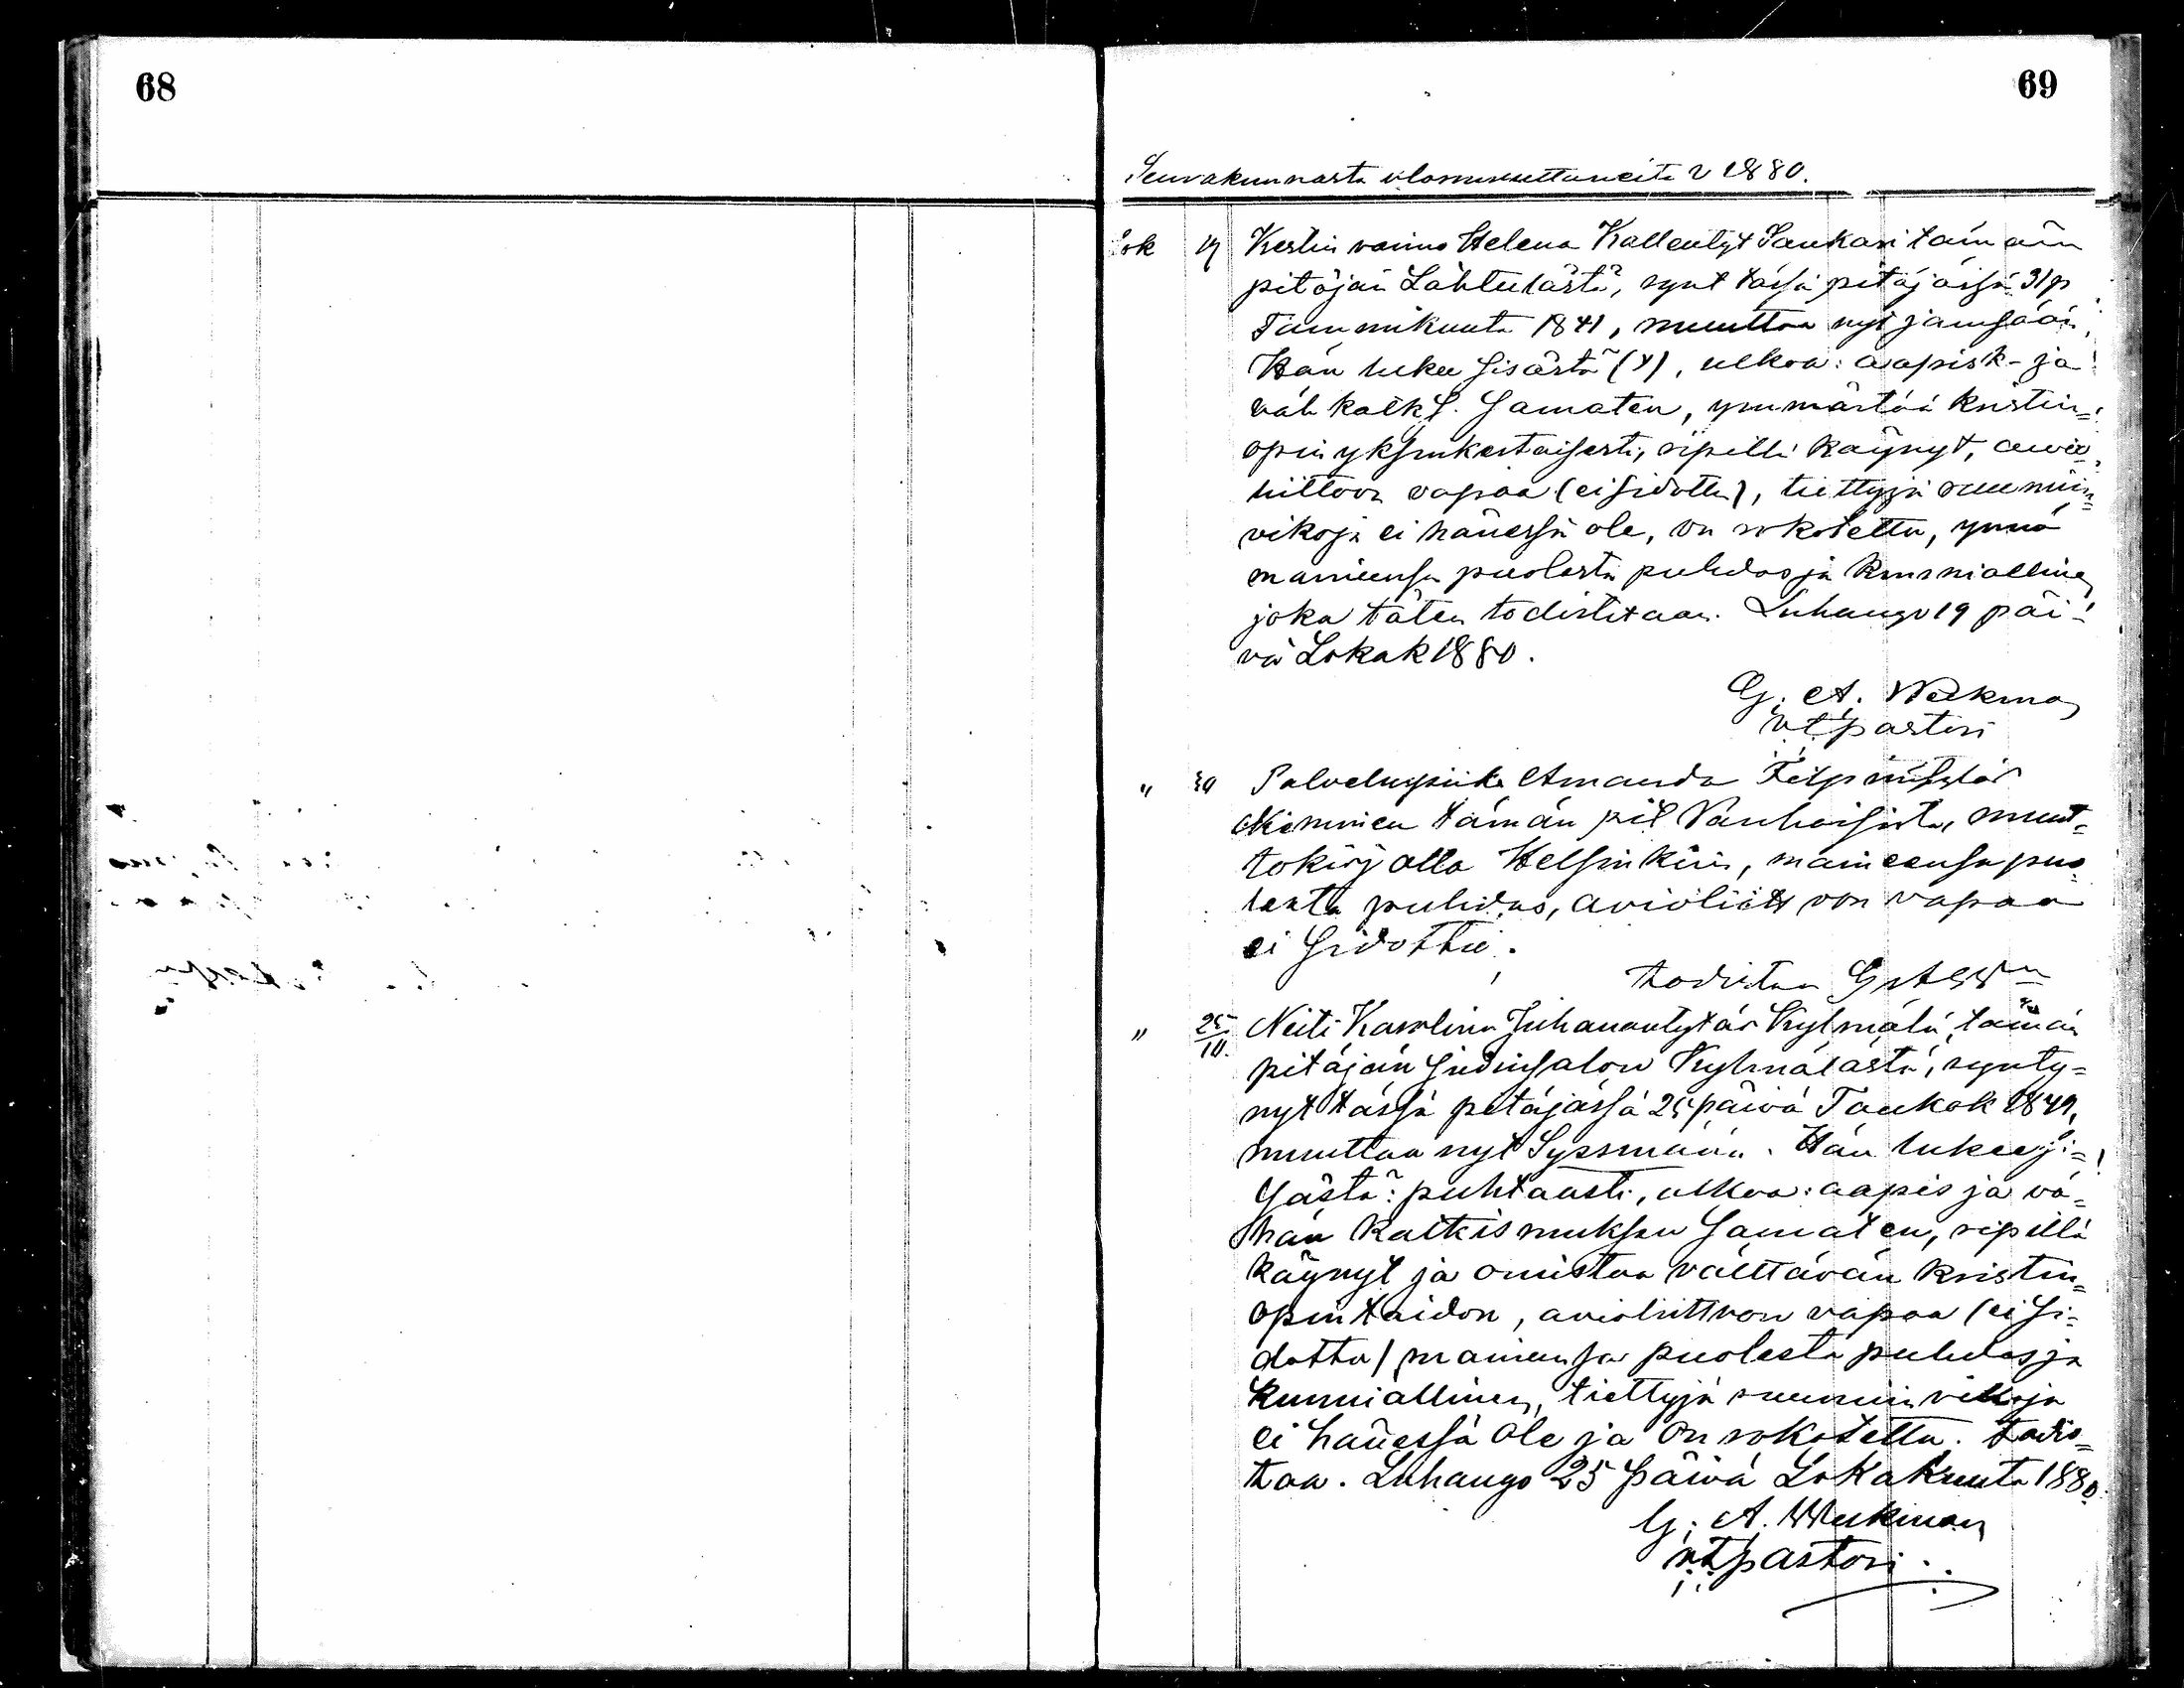 68
69
Seurakunnasta ulosmuuttaneita v 1880.
Lok 19 Kestin vaimo Helena Kallentyt Saukari tämän
pitäjän Lahtulasta, synt tässä pitäjässä 31 p
Tammikuuta 1841, muuttaa nyt Jämsään,
Hän lukee sisästä (y), ulkoa: aapisk- ja
väh katk s. samaten, ymmärtää kristin=
opin yksinkertaisesti, ripillä käynyt, avio
liittoon vapaa (ei sidottu), tiettyjä ruumiin=
vikoja ei hänessä ole, on rokotettu, ynnä
maineensa puolesta puhdas ja kunniallinen
joka täten todistetaan. Luhango 19 päi=
vä Lokak 1880.
G. A. Wekman
vt pastori
" Palveluspiika Amanda
tämän pit Vanhoisista, muut=
tokirj otta Helsinkiin, maineensa puo
lesta puhdas, avioliittoon vapaa
ei sidottu.
todistaa G A W
" 25/10. Neiti Karolina Juhanantytär Kylmälä, tämän
pitäjän Judinsalon Kylmälästä, synty=
nyt tässä pitäjässä 25 päivä Toukok 1849,
muuttaa nyt Syssmään. Hän lukee si=
sästä: puhtaasti, ulkoa: aapis ja vä=
hän katkismuksen samaten, ripillä
käynyt ja omistaa välttävän kristin=
opin taidon, avioliittoon vapaa (ei si=
dottu) maineensa puolesta puhdas ja
kunniallinen, tiettyjä ruumiin vikoja
ei hänessä ole ja on rokotettu. todis=
taa. Luhango 25 päivä Lokakuuta 1880.
G. A. Wekman
vt pastori.